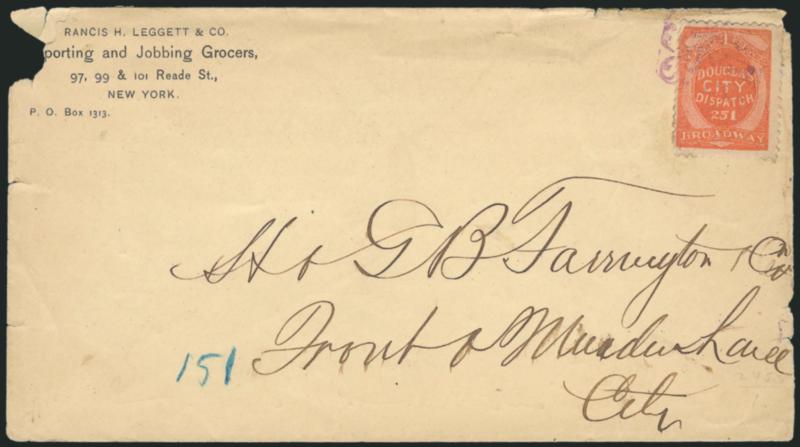 RANCIS H. LEGGETT & CO.
porting and Jobbing Grocers,
97, 99 & 101 Reade St.,
NEW YORK.
P. O. Box 1313.
DOUGLAS
CITY
DISPATCH
251
BROADWAY
G B Farrington & Co
Front &
City
151